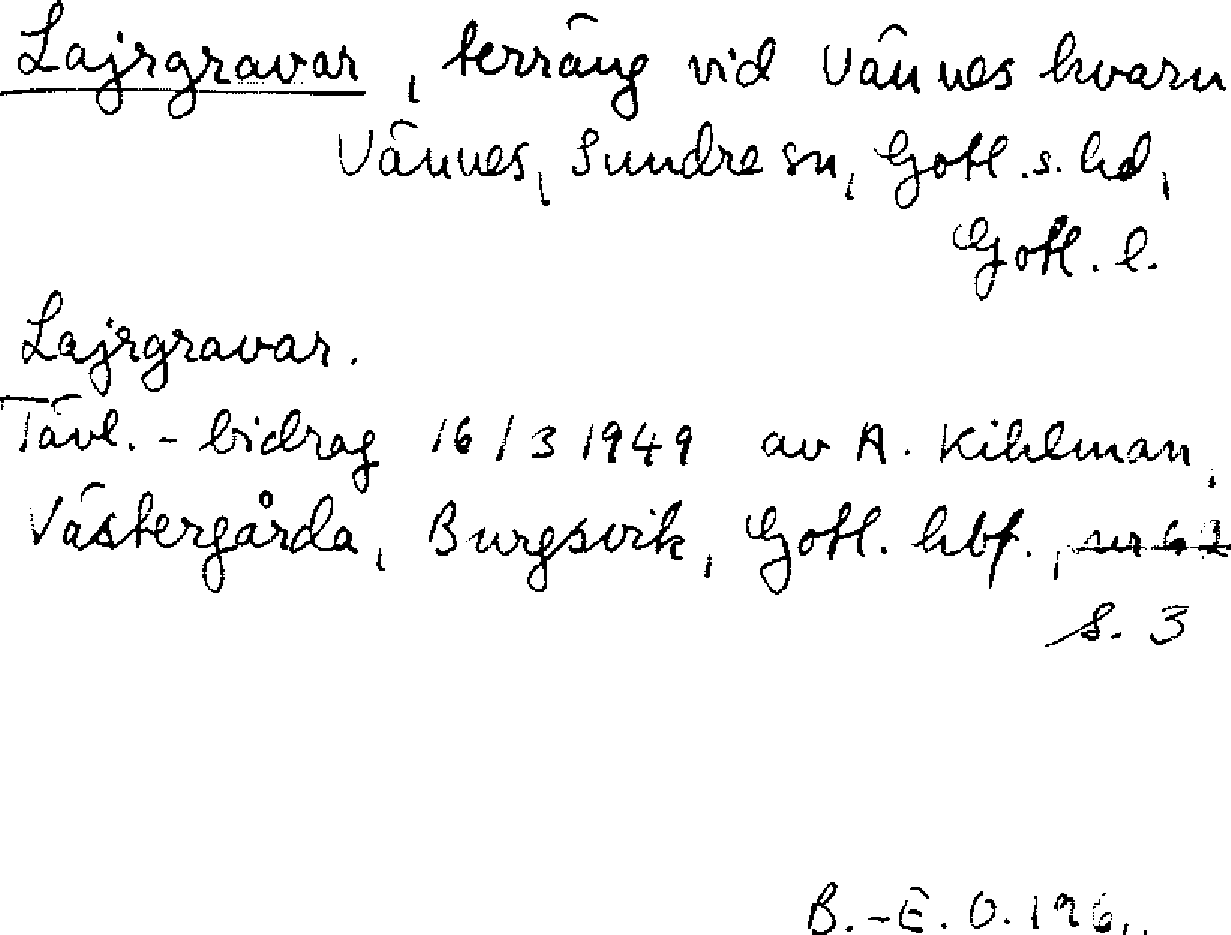 Lajrgravar, terräng vid Vännes kvarn
Vännes, Sundre sn, Gotl. s. hd,
Gotl. l.
Lajrgravar.
Tävl.-bidrag 16/3 1949 av A. Kihlman,
Västergårda, Burgsvik, Gotl. hbf., nr 62
s. 3
B.-E. O.